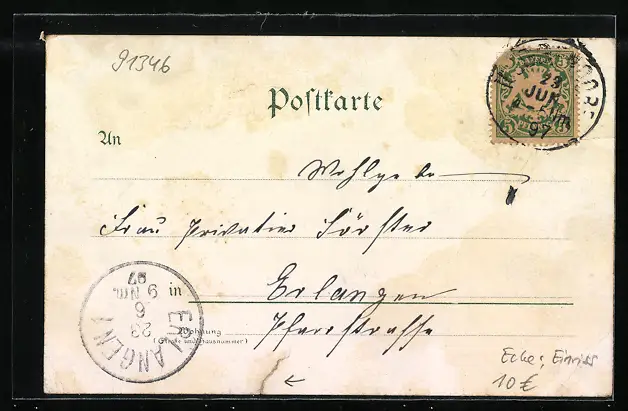 91346
Postkarte
23
JUN
97
An
Wohlge
Frau Privatier Förster
in Erlangen
Wohnung
(Straße und Hausnummer)
Pfarrstrasse
ERLANGEN 1
23
6
9 Nm.
97
Ecke; Einriss
10 €